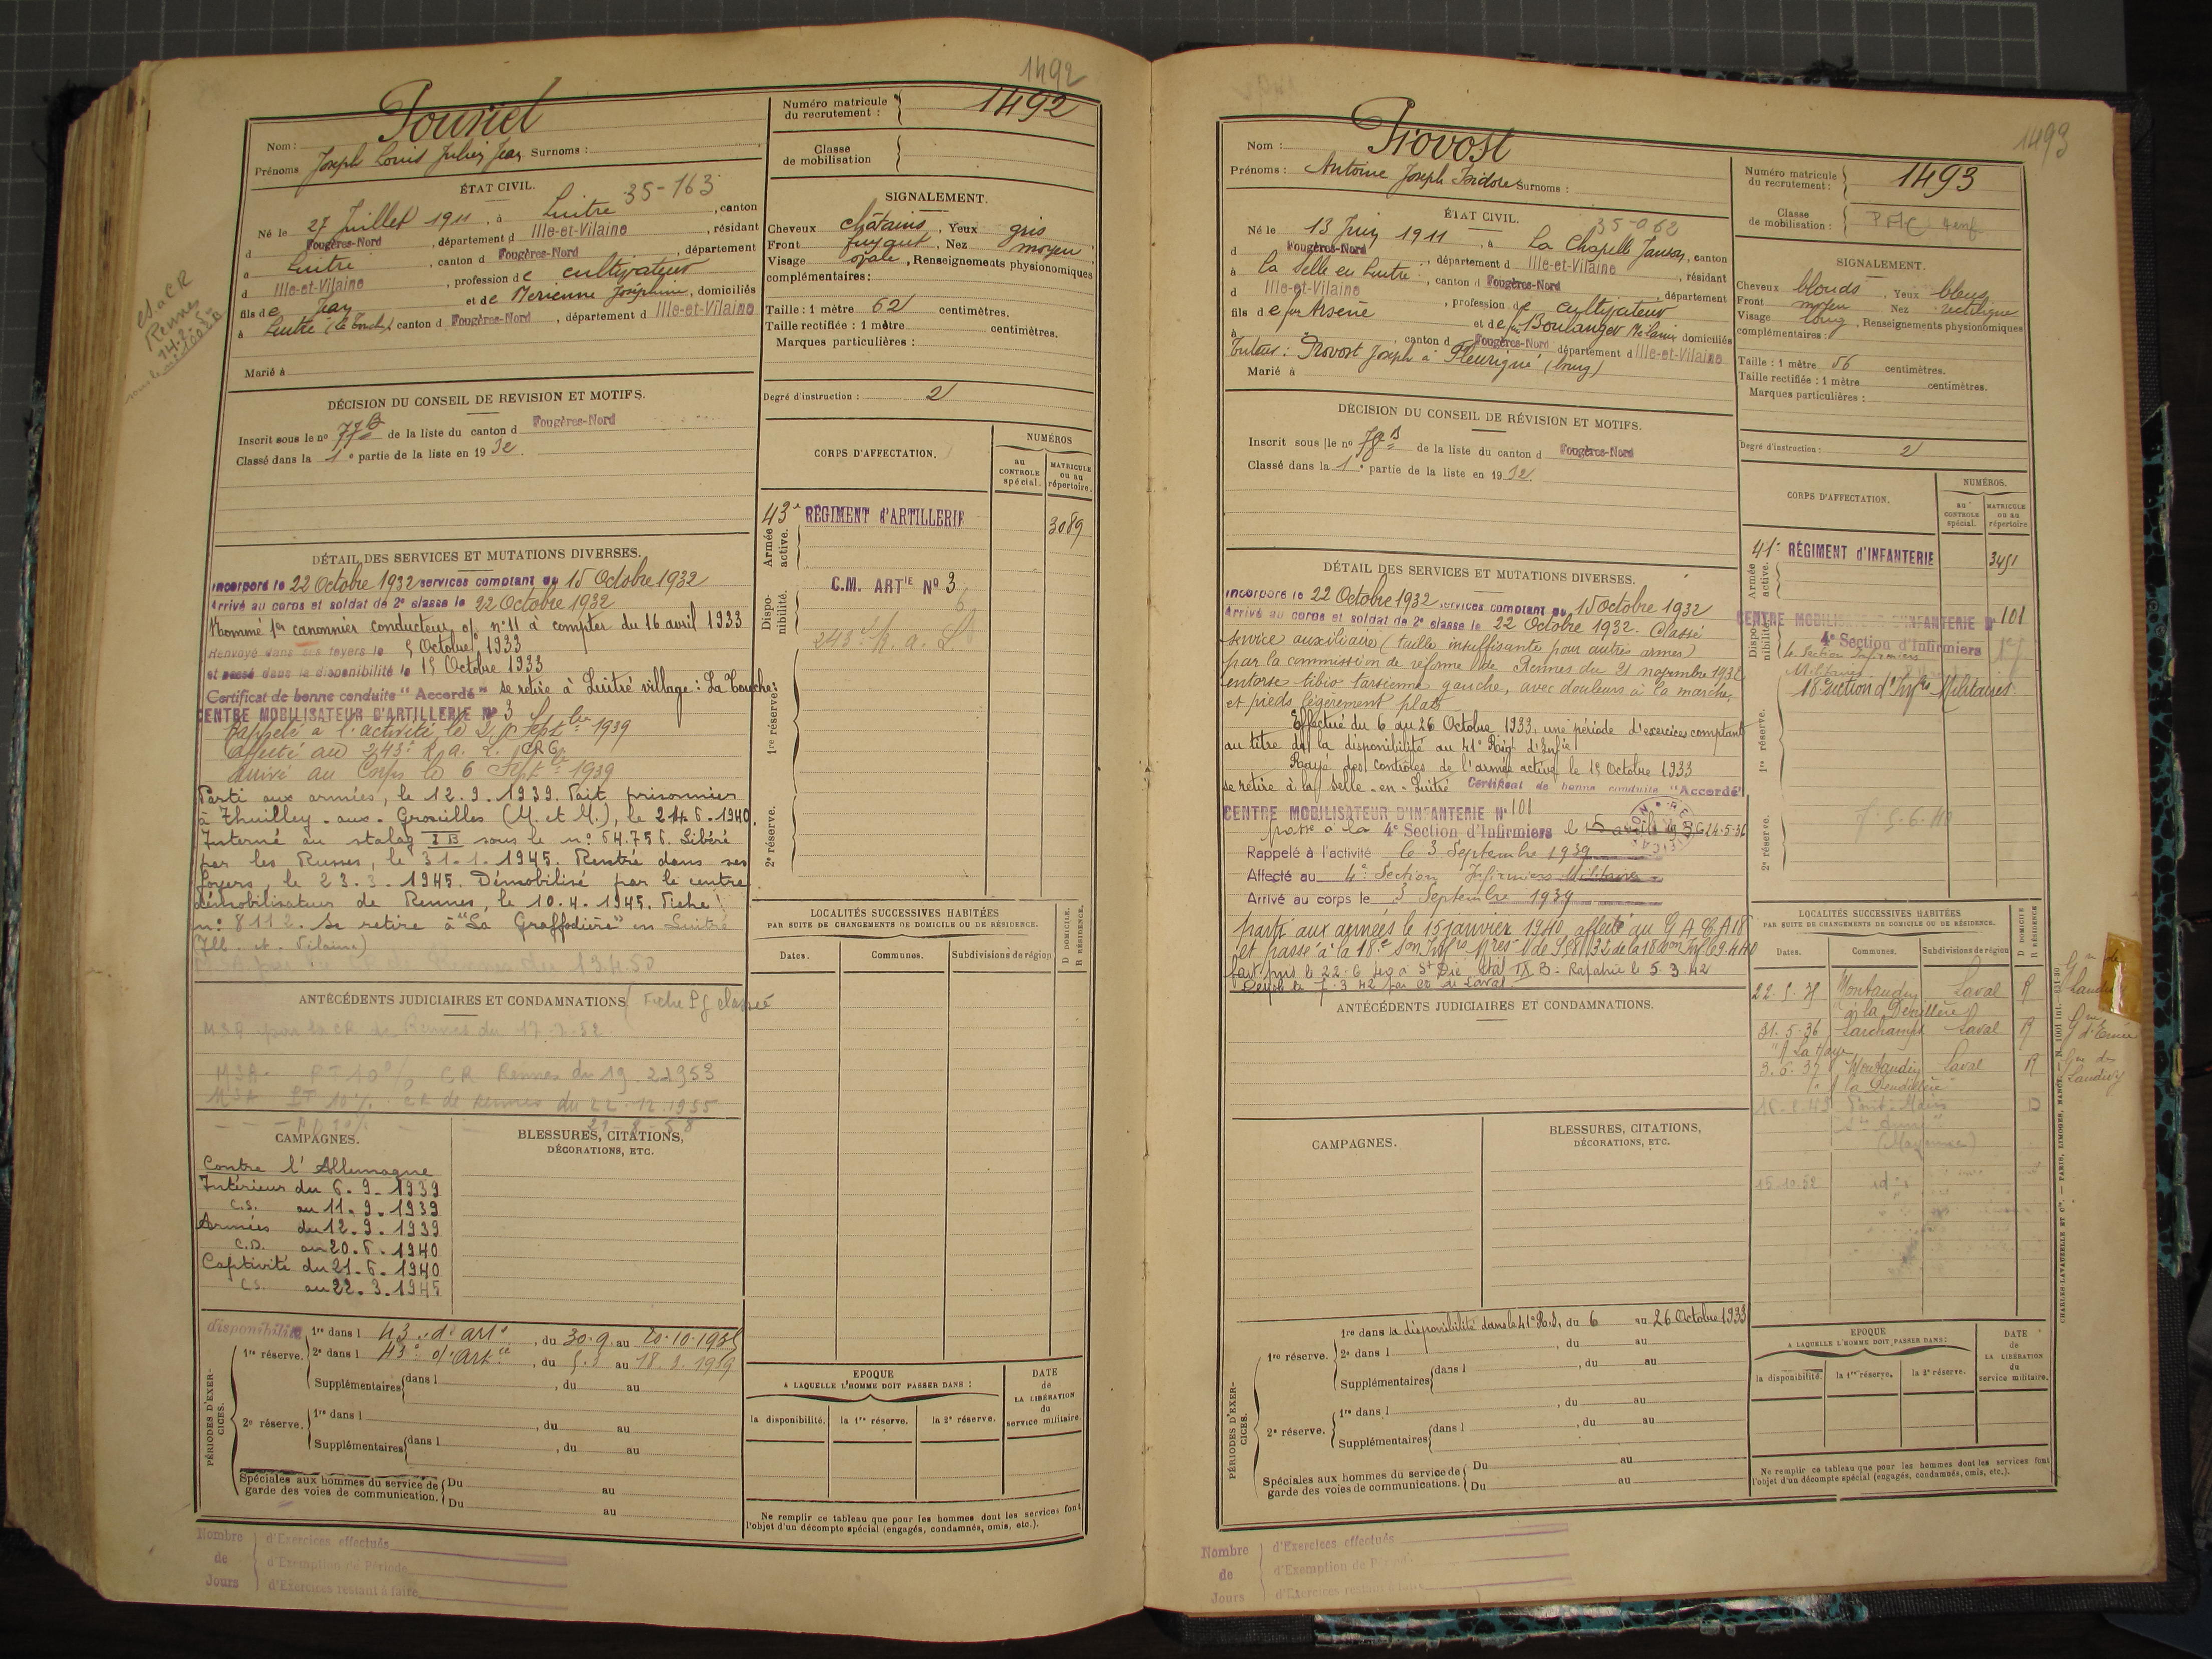 1492
Nom : Pouriel
Prénoms Joseph Louis Julien Jean Surnoms :
ÉTAT CIVIL. 35-163
Né le 27 Juillet 1911, à Luitré, canton
d Fougères-Nord, département d Ille-et-Vilaine, résidant
à Luitré, canton d Fougères-Nord, département
d Ille-et-Vilaine, profession de cultivateur
fils de Jean et de Merienne Joséphine, domiciliés
à Luitré (la Touche) canton d Fougères-Nord, département d Ille-et-Vilaine
Marié à
DÉCISION DU CONSEIL DE REVISION ET MOTIFS.
Inscrit sous le no 77 B de la liste du canton d Fougères-Nord
Classé dans la 1e partie de la liste en 1932.
DÉTAIL DES SERVICES ET MUTATIONS DIVERSES.
Incorporé le 22 Octobre 1932 services comptant du 15 Octobre 1932
Arrivé au corps et soldat de 2e classe le 22 Octobre 1932
Nommé 1er canonnier conducteur o/ n° 11 à compter du 16 avril 1933
Renvoyé dans ses foyers le 5 Octobre 1933
et passé dans la disponibilité le 15 Octobre 1933
Certificat de bonne conduite "Accordé" se retire à Luitré village : La Touche
CENTRE MOBILISATEUR D'ARTILLERIE N° 3
Rappelé à l'activité le 2 Septbre 1939
affecté au 243e R. a. L.
arrivé au Corps le 6 Septbre 1939
Parti aux armées, le 12.9.1939. Fait prisonnier
à Thuilley-aux-Groseilles (M. et M.), le 21.6.1940.
Interné au stalag I B sous le n° 64.756. Libéré
par les Russes, le 31.1.1945. Rentré dans ses
foyers, le 23.3.1945. Démobilisé par le centre
démobilisateur de Rennes, le 10.4.1945. Fiche
n° 8112. Se retire à "La Graffardière" en Luitré
(Ill. et. Vilaine)
ANTÉCÉDENTS JUDICIAIRES ET CONDAMNATIONS Fiche PG classée
MSR par la CR de Rennes du 17.7.52
MSR - PT 10% CR Rennes du 19.2.1953
MSR PT 10% CR de Rennes du 22.12.1955
CAMPAGNES.
Contre l'Allemagne
Intérieur du 6.9.1939
C.S. au 11.9.1939
Armées du 12.9.1939
C.D. au 20.6.1940
Captivité du 21.6.1940
C.S. au 22.3.1945
BLESSURES, CITATIONS,
DÉCORATIONS, ETC.
PÉRIODES D'EXERCICES.
disponibilité 1re dans l 43e d'arte, du 30.9 au 20.10.1935
1re réserve. 2e dans l 43e d'Artie, du 5.3 au 18.3.1939
Supplémentaires dans l , du au
2e réserve. 1re dans l , du au
Supplémentaires dans l , du au
Spéciales aux hommes du service de garde des voies de communication. Du au
Du au
Nombre de Jours
d'Exercices effectués
d'Exemption de Période
d'Exercices restant à faire
Numéro matricule du recrutement : 1492
Classe de mobilisation
SIGNALEMENT.
Cheveux châtains, Yeux gris
Front fuyant, Nez moyen
Visage ovale, Renseignements physionomiques
complémentaires :
Taille : 1 mètre 62 centimètres.
Taille rectifiée : 1 mètre centimètres.
Marques particulières :
Degré d'instruction : 2
CORPS D'AFFECTATION.
NUMÉROS
au CONTROLE spécial.
MATRICULE ou au répertoire.
Armée active.
43e RÉGIMENT d'ARTILLERIE 3089
Disponibilité.
C.M. ARTIE N° 3
243e R. a. L
1re réserve.
2e réserve.
LOCALITÉS SUCCESSIVES HABITÉES
PAR SUITE DE CHANGEMENTS DE DOMICILE OU DE RÉSIDENCE.
D DOMICILE.
R RÉSIDENCE.
Dates. Communes. Subdivisions de région
EPOQUE
A LAQUELLE L'HOMME DOIT PASSER DANS :
la disponibilité. la 1re réserve. la 2e réserve.
DATE
de
LA LIBÉRATION
du
service militaire.
Ne remplir ce tableau que pour les hommes dont les services font
l'objet d'un décompte spécial (engagés, condamnés, omis, etc.).
1493
Nom : Provost
Prénoms : Antoine Joseph Isidore Surnoms :
ÉTAT CIVIL. 35-062
Né le 13 Juin 1911, à La Chapelle Janson, canton
d Fougères-Nord, département d Ille-et-Vilaine, résidant
à la Selle en Luitré, canton d Fougères-Nord, département
d Ille-et-Vilaine, profession de cultivateur
fils de feu Arsène et de feu Boulanger Mélanie domiciliés
à , canton d Fougères-Nord département d Ille-et-Vilaine
Tuteur : Provost Joseph à Fleurigné (bourg)
Marié à
DÉCISION DU CONSEIL DE RÉVISION ET MOTIFS.
Inscrit sous le no 79 B de la liste du canton d Fougères-Nord
Classé dans la 1e partie de la liste en 1932.
DÉTAIL DES SERVICES ET MUTATIONS DIVERSES.
Incorporé le 22 Octobre 1932, services comptant du 15 octobre 1932
Arrivé au corps et soldat de 2e classe le 22 Octobre 1932. Classé
service auxiliaire (taille insuffisante pour autres armes)
par la commission de réforme de Rennes du 21 novembre 1932
entorse tibio tarsienne gauche, avec douleurs à la marche,
et pieds légèrement plats
Effectué du 6 au 26 Octobre 1933, une période d'exercices comptant
au titre de la disponibilité au 41e Régt d'Infie
Rayé des contrôles de l'armée active le 15 Octobre 1933
se retire à la Selle-en-Luitré Certificat de bonne conduite "Accordé"
CENTRE MOBILISATEUR D'INFANTERIE N° 101
passé à la 4e Section d'Infirmiers le 24-5-36
Rappelé à l'activité le 3 Septembre 1939
Affecté au 4e Section Infirmiers Militaires
Arrivé au corps le 3 Septembre 1939
parti aux armées le 15 janvier 1940 affecté au G A C A 18
fait pris le 22.6.40 à St Dié Stal IX B - Rapatrié le 5.3.42
ANTÉCÉDENTS JUDICIAIRES ET CONDAMNATIONS.
CAMPAGNES.
BLESSURES, CITATIONS,
DÉCORATIONS, ETC.
PÉRIODES D'EXERCICES.
1re réserve. 1re dans la disponibilité dans le 41e R.I, du 6 au 26 Octobre 1933
2e dans l , du au
Supplémentaires dans l , du au
2e réserve. 1re dans l , du au
Supplémentaires dans l , du au
Spéciales aux hommes du service de garde des voies de communications. Du au
Du au
Nombre de Jours
d'Exercices effectués
d'Exemption de Période
d'Exercices restant à faire
Numéro matricule du recrutement : 1493
Classe de mobilisation :
SIGNALEMENT.
Cheveux blonds, Yeux bleus
Front moyen Nez rectiligne
Visage long, Renseignements physionomiques
complémentaires :
Taille : 1 mètre 56 centimètres.
Taille rectifiée : 1 mètre centimètres.
Marques particulières :
Degré d'instruction : 2
CORPS D'AFFECTATION.
NUMÉROS.
au CONTROLE spécial.
MATRICULE ou au répertoire
Armée active.
41e RÉGIMENT d'INFANTERIE 3451
Disponibilité
CENTRE MOBILISATEUR D'INFANTERIE N° 101
4e Section d'Infirmiers
4e Section Infirmiers
Militaires
18e section d'Infres Militaires
1re réserve.
2e réserve.
LOCALITÉS SUCCESSIVES HABITÉES
PAR SUITE DE CHANGEMENTS DE DOMICILE OU DE RÉSIDENCE.
D DOMICILE
R RÉSIDENCE
Dates. Communes. Subdivisions de région
Montaudin Laval R
31.5.36 Larchamp Laval R
"A La Haye"
3.6.37 Montaudin Laval R
Pontmain D
(Mayenne)
15.10.52 id
EPOQUE
A LAQUELLE L'HOMME DOIT PASSER DANS :
la disponibilité. la 1re réserve. la 2e réserve.
DATE
de
LA LIBÉRATION
du
service militaire.
Ne remplir ce tableau que pour les hommes dont les services font
l'objet d'un décompte spécial (engagés, condamnés, omis, etc.).